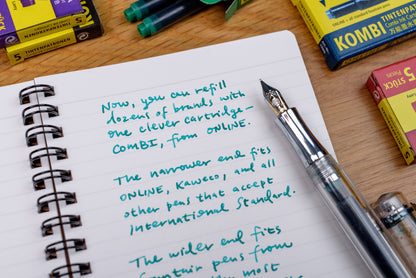 5
KOMBI
5 TINTENPATRONEN
KOMBI
TINTENPATRONEN
5 Pens
5 STÜCK
Now, you can refill
dozens of brands with
one clever cartridge—
COMBI, from ONLINE.
The narrower end fits
ONLINE, Kaweco, and all
other pens that accept
International Standard.
The wider end fits
fountain pens from
most